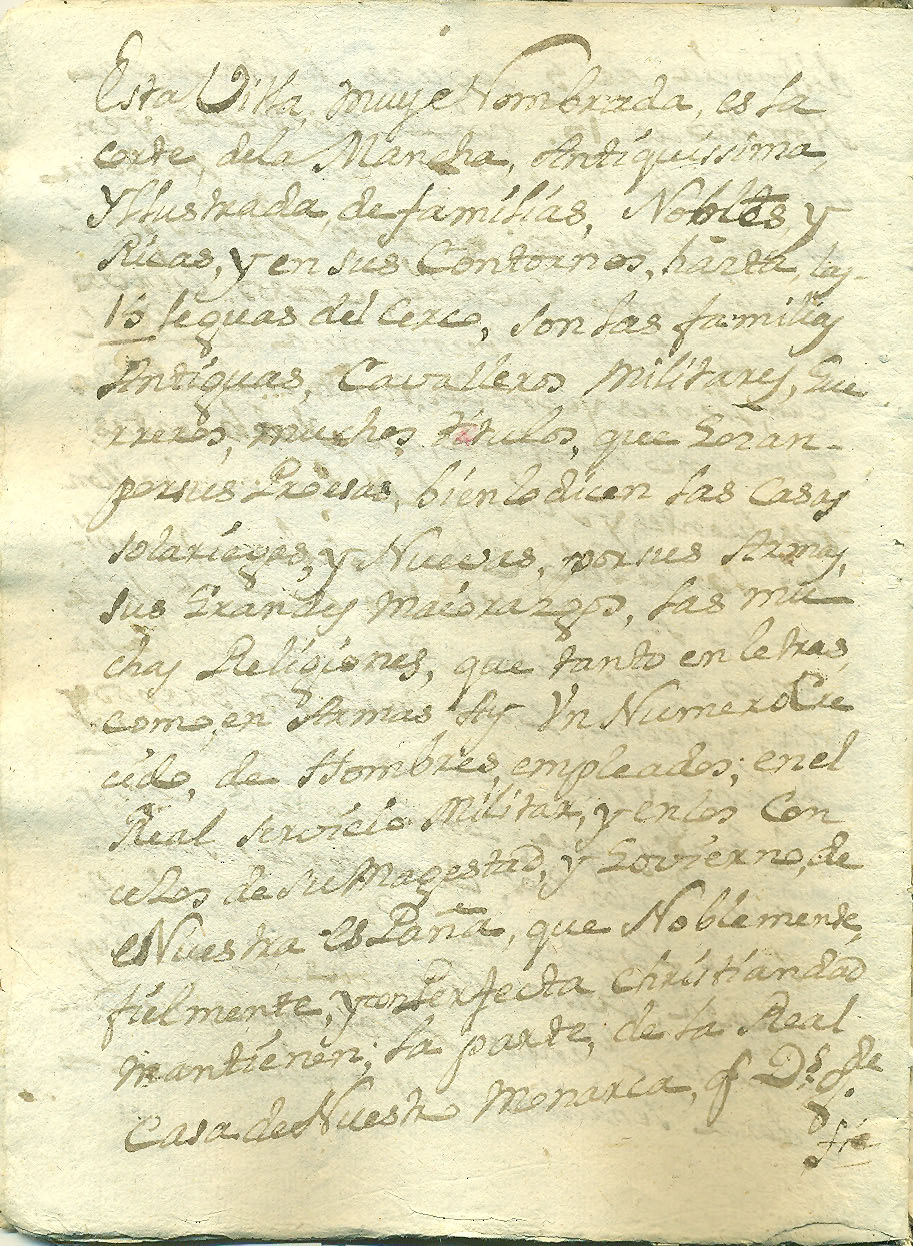 Esta Villa, muy Nombrada, es la
corte, dela Mancha, Antiquissima
Yllustrada de familias, Nobles, y
Ricas, y en sus Contornos, hasta las
15 leguas del cerco, son las familias
Antiguas, Cavalleros Militares, Gue
rreros, muchos titulos, que Gozan
porsus Proesas, bien lo dicen las Casas
solariegas, y Nuevas, por sus Armas,
sus Grandes maiorazgos, las mu
chas Religiones, que tanto en letras,
como en Armas Ay Vn Numero Cre
cido, de Hombres, empleados; en el
Real servicio Militar, y enlos Con
celos de su Magestad, y Govierno, de
Nuestra España, que Noblemente,
fielmente, y con Perfecta Christiandad
mantienen; la parte, de la Real
Casa de Nuestro Monarca, q Ds. gde